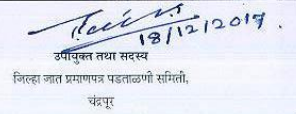 18/12/2017.
उपायुक्त तथा सदस्य
जिल्हा जात प्रमाणपत्र पडताळणी समिती,
चंद्रपूर